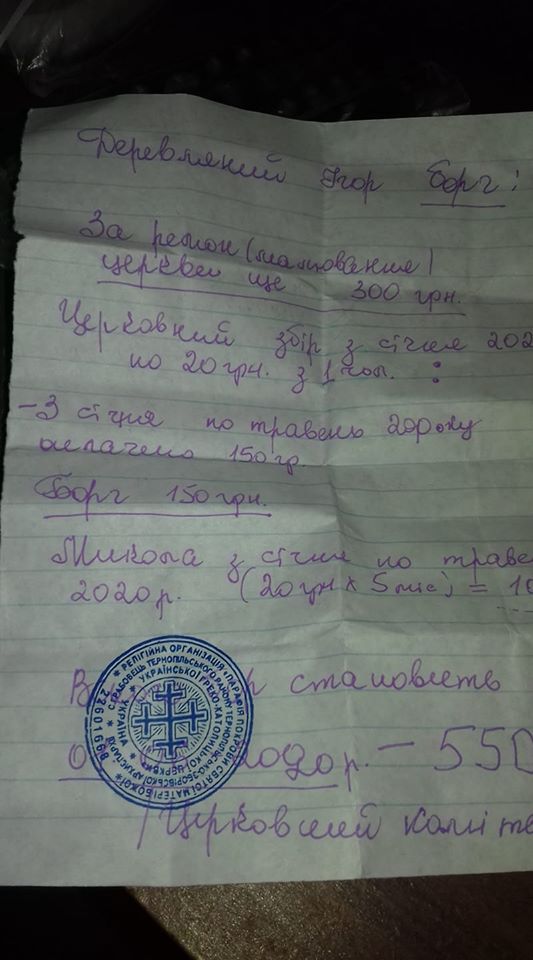 Деревляний Ігор борг:
За ремон (малювання)
церкви ще 300 грн.
Церковний збір з січня 202
по 20 грн. з 1 чол. :
- З січня по травень 20 року
оплачено 150 гр.
Борг 150 грн.
Микола з січня по траве
2020 р. (20 грн х 5 міс) = 10
В становить
2020 р. - 550
/Церковний коміте
РЕЛІГІЙНА ОРГАНІЗАЦІЯ "ПАРАФІЯ ПОКРОВИ СВЯТОЇ МАТЕРІ БОЖОЇ
С.СЕРАБОВЕЦЬ ТЕРНОПІЛЬСЬКОГО РАЙОНУ ТЕРНОПІЛЬСЬКО-ЗБОРІВСЬКОЇ АРХИЄПАРХІЇ
УКРАЇНСЬКОЇ ГРЕКО-КАТОЛИЦЬКОЇ ЦЕРКВИ"
УКРАЇНА